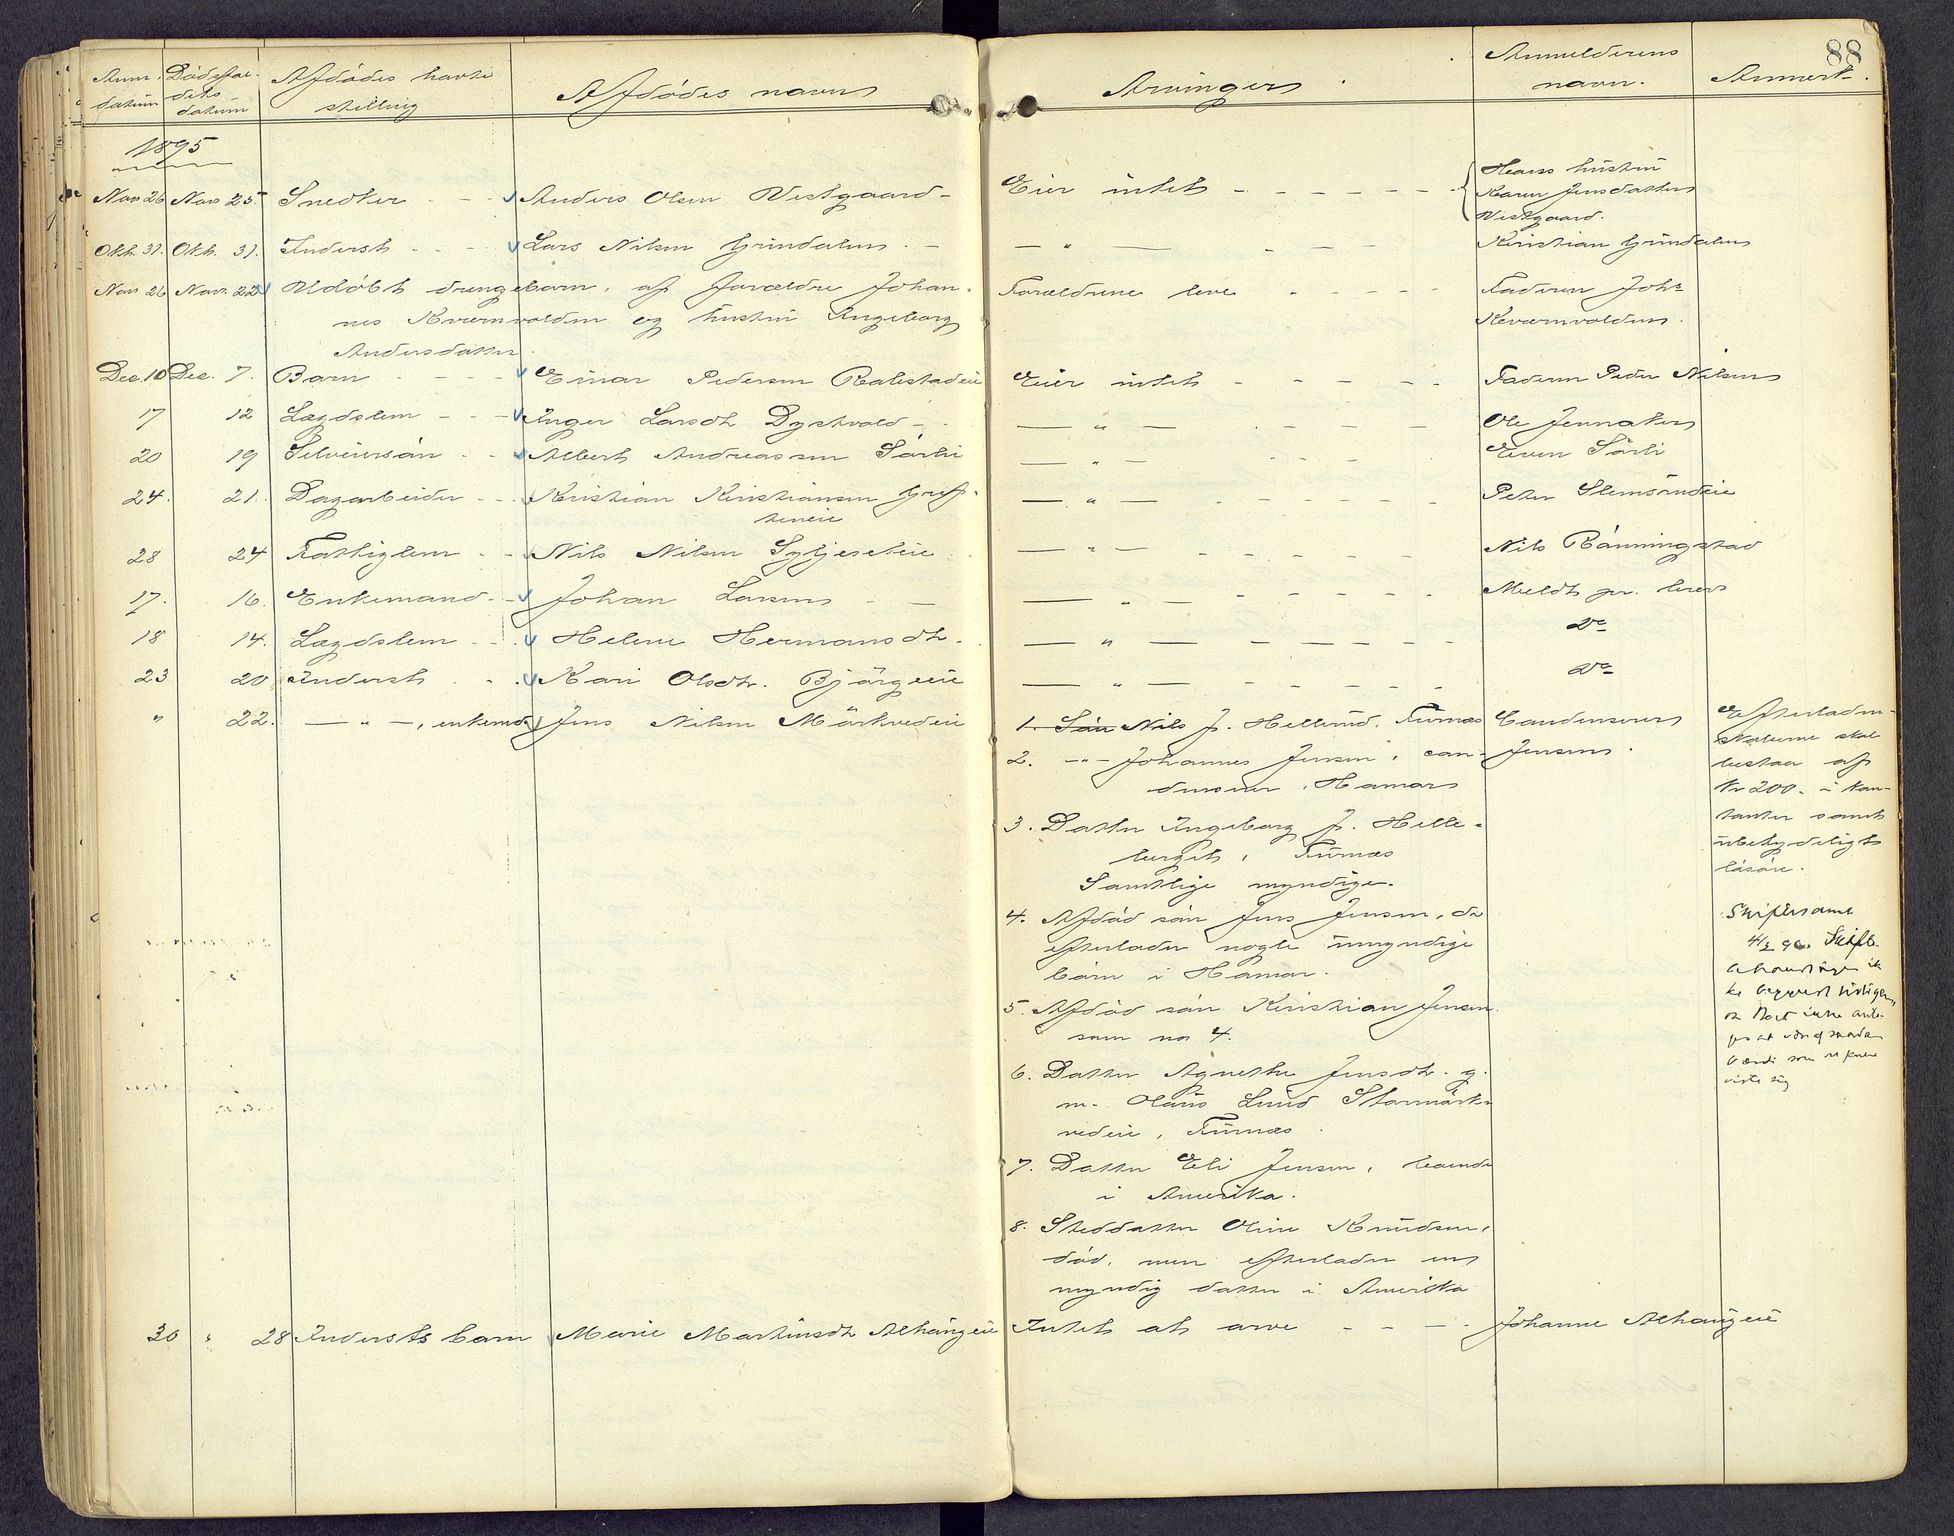 88
Anm. datum
Dødsfaldets datum
Afdødes havte stilling
Afdødes navn
Arvinger
Anmelderens navn.
Anmerk.
1895
Nov 26 Nov 25 Snedker - - Anders Olsen Vestgaard - Eier intet - - - - - Hans hustru
Karen Jensdatter
Vestgaard.
Okt. 31. Okt. 31. Inderst - - Lars Nilsen Grindalen - — " — - - - Kristian Grindalen
Nov 26 Nov. 22 Udøbt drengebarn, af forældre Johan- Forældrene leve - - - - Faderen Johs
nes Kværnvolden og hustru Ingeborg Kværnvolden.
Andersdatter.
Dec. 10 Dec. 7. Barn - - - Einar Pedersen Ralestadeie Eier intet - - - - - Faderen Peder Nilsen
17 12 Lægdslem - - - Inger Larsdt. Dystvold - — " — - - - - Ole Jemnaker
20 19 Selveiersøn - - Albert Andreassen Sørli — " — - - - Even Sørli
24. 21. Dagarbeider - - Kristian Kristiansen Gref- — " — - - - - - Peter Slemsrudeie
seneie
28 24 Fattiglem - - Nils Nilsen Syljeseteie — " — - - - - - Nils Rønningstad
17. 16. Enkemand - - Johan Larsen - — — " — - - - - - Meldt pr. brev
18 14. Lægdslem - - Helene Hermansdt. — " — - - - - Do
23 20 Inderst - - Kari Olsdt. Bjørgeeie — " — - - - - Do
" 22. — " —, enkemd. Jens Nilsen Mørkvedeie 1. Søn Nils J. Hellund, Furnæs Condensener
2. -"- Johannes Jensen, con- Jensen.
densener, Hamar
3. Datter Ingeborg J. Helle-
berget, Furnæs
Samtlige myndige.
4. Afdød søn Jens Jensen, der
efterlader nogle umyndige
børn i Hamar.
5. Afdød søn Kristian Jensen
som no 4.
6. Datter Agnethe Jensdt. g.
m. Olaus Lund Stormørk-
vedeie, Furnæs.
7. Datter Eli Jensen, boende
i Amerika.
8. Steddatter Oline Knudsen,
død, men efterlader en
myndig datter i Amerika
Efterladen-
skaberne skal
bestaa af
Kr 200.- i kon-
tanter samt
ubetydeligt
løsøre.
Skiftesaml
4/2 96. Skifte-
behandlingen ik
ke begjært
30 " 28 Indersts barn Marie Martinsdt Alhaugeie Intet at arve - - - - Johanne Alhaugeie